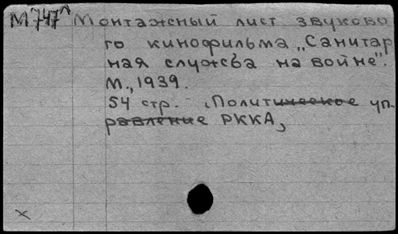 М747^ Монтажный лист звуково
го кинофильма „Санитар
ная служба на войне".
М., 1939.
54 стр. (Политическое уп-
равление РККА,
х